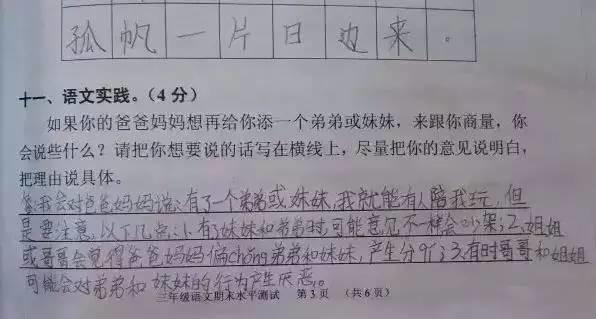 孤帆一片日边来。
十一、语文实践。(4分)
如果你的爸爸妈妈想再给你添一个弟弟或妹妹，来跟你商量，你
会说些什么？请把你想要说的话写在横线上，尽量把你的意见说明白，
把理由说具体。
我会对爸爸妈妈说：有了一个弟弟或妹妹，我就能有人陪我玩，但
是要注意，以下几点：1、有了妹妹和弟弟时，可能意见不一样会吵架；2、姐姐
或哥哥会觉得爸爸妈妈偏chǒng弟弟和妹妹，产生分；3、有时哥哥和姐姐
可能会对弟弟和妹妹的行为产生厌恶。
三年级语文期末水平测试 第3页 (共6页)